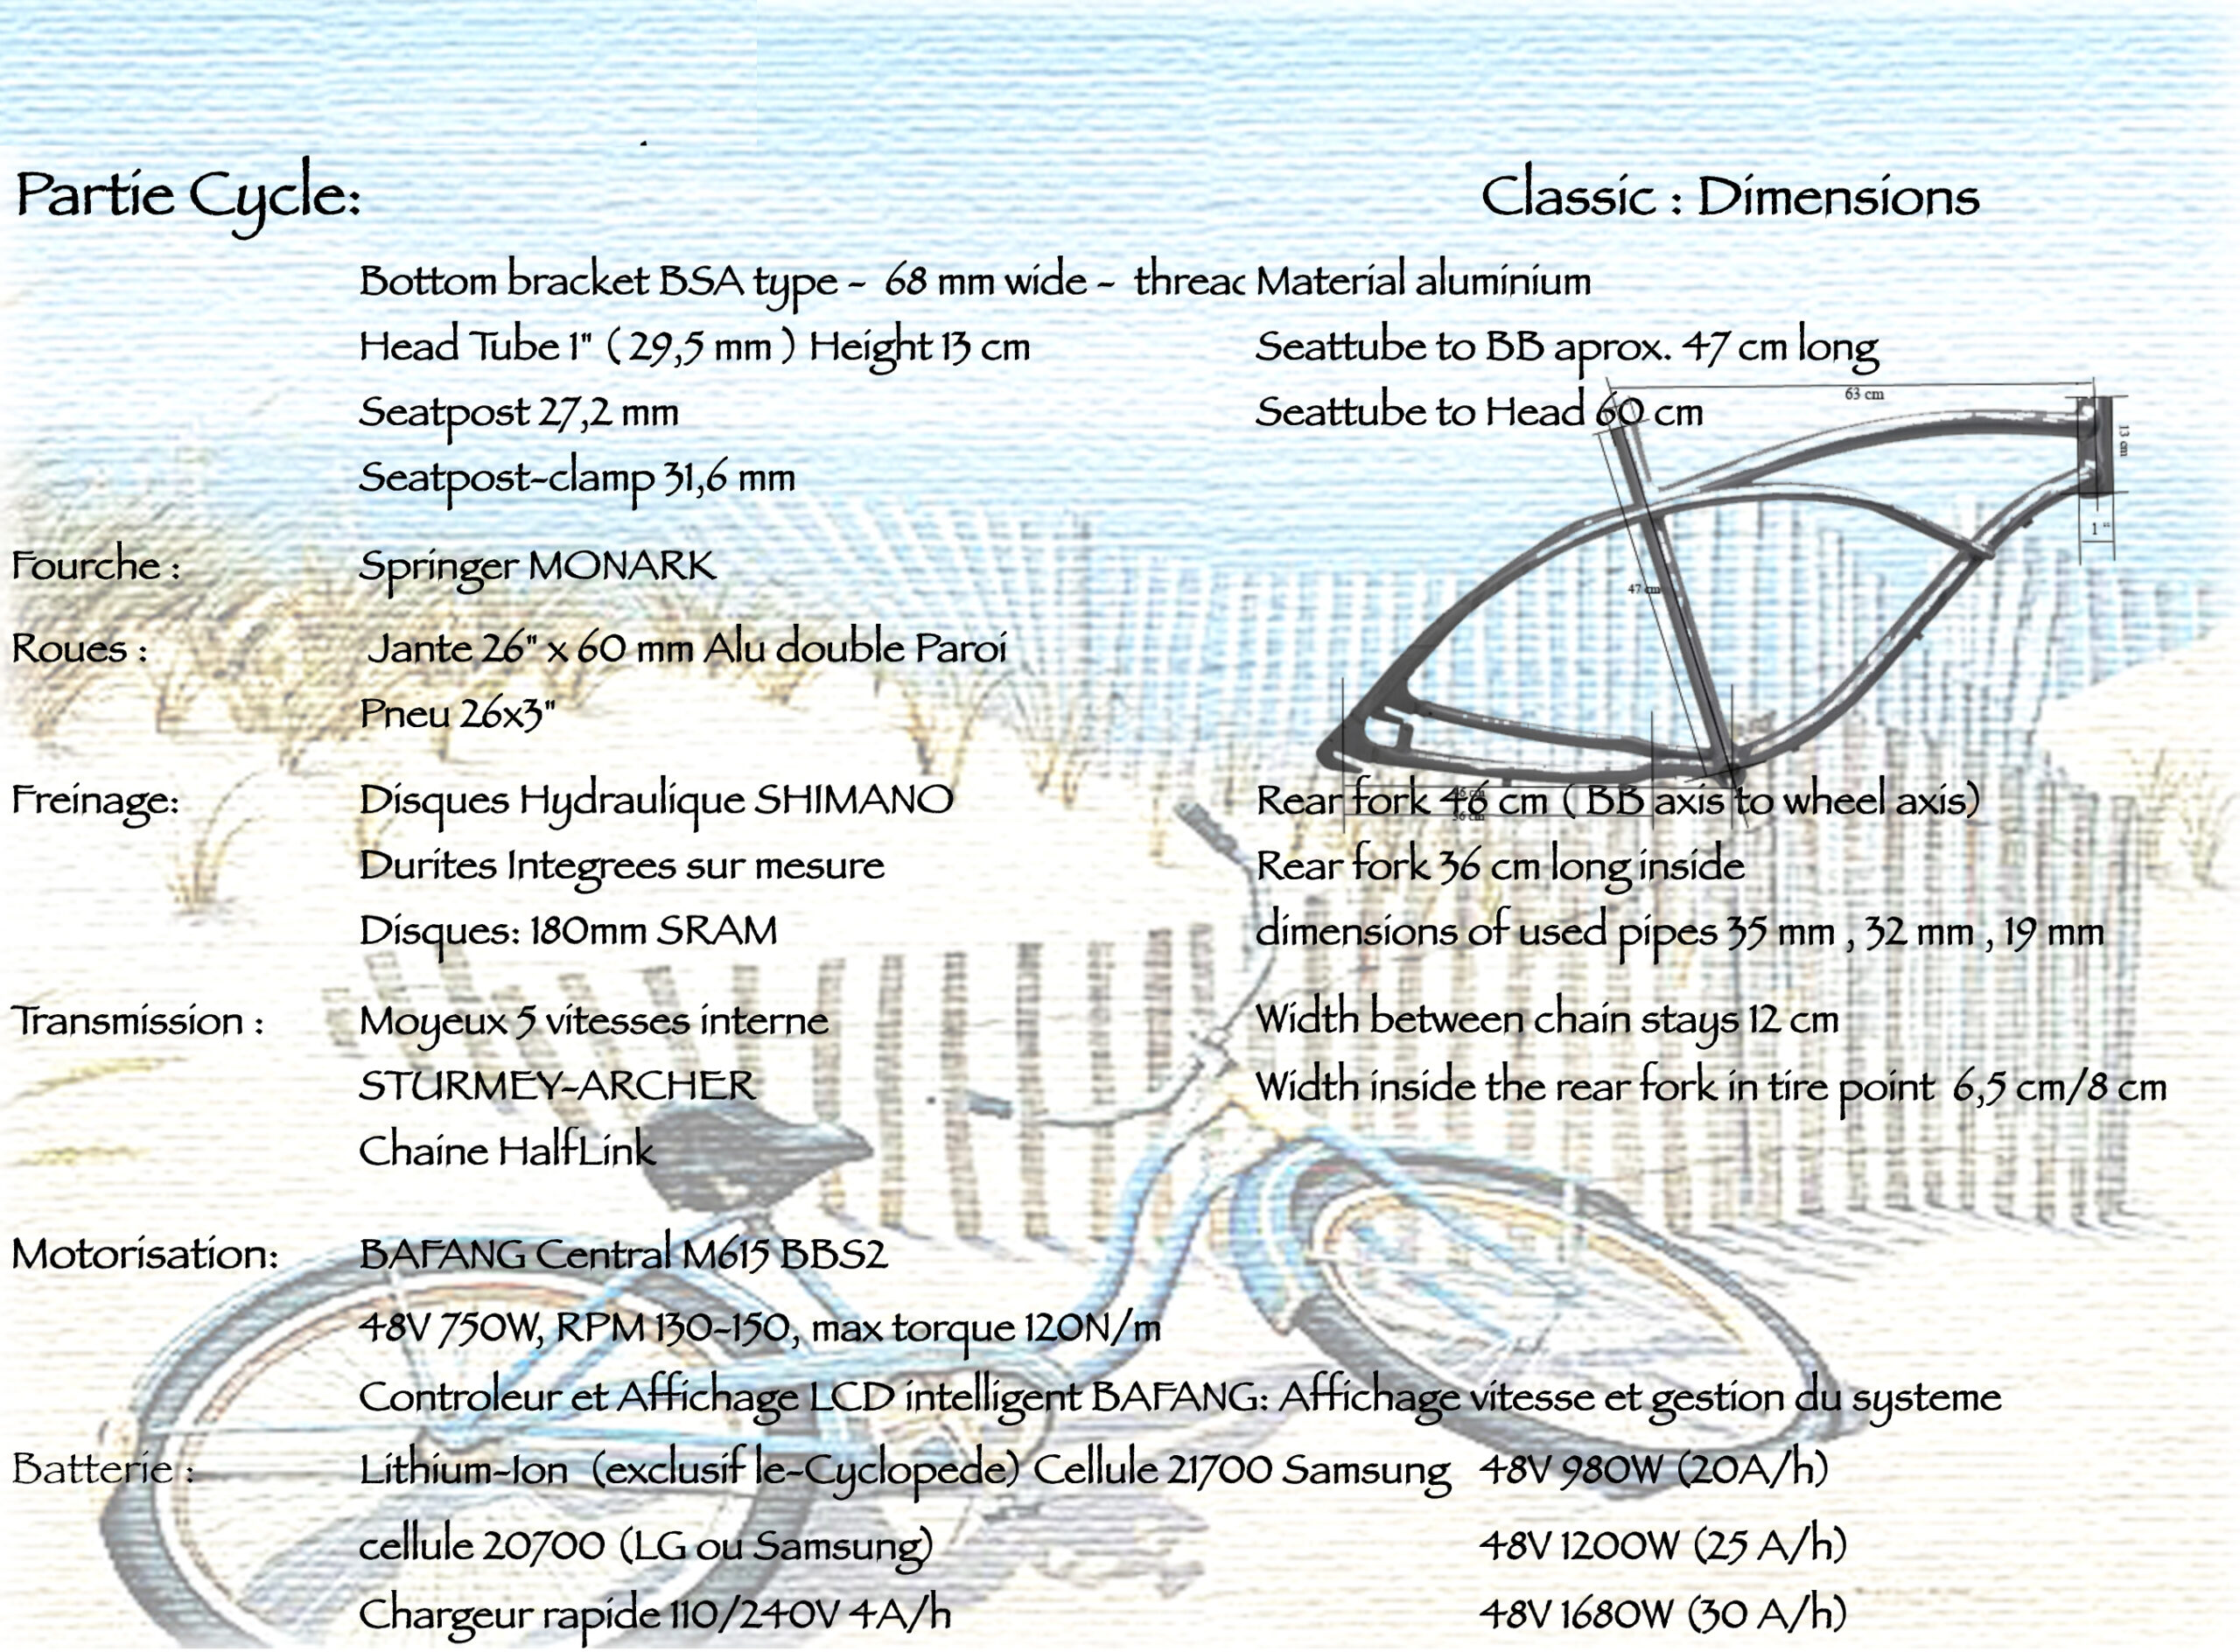 Partie Cycle:
Classic : Dimensions
Bottom bracket BSA type - 68 mm wide - threac Material aluminium
Head Tube 1" ( 29,5 mm ) Height 13 cm
Seattube to BB aprox. 47 cm long
Seatpost 27,2 mm
Seattube to Head 60 cm
63 cm
13 cm
Seatpost-clamp 31,6 mm
1 "
Fourche : Springer MONARK
47 cm
Roues : Jante 26" x 60 mm Alu double Paroi
Pneu 26x3"
Freinage: Disques Hydraulique SHIMANO
Rear fork 46 cm ( BB axis to wheel axis)
Durites Integrees sur mesure
Rear fork 36 cm long inside
Disques: 180mm SRAM
dimensions of used pipes 35 mm , 32 mm , 19 mm
Transmission : Moyeux 5 vitesses interne
Width between chain stays 12 cm
STURMEY-ARCHER
Width inside the rear fork in tire point 6,5 cm/8 cm
Chaine HalfLink
Motorisation: BAFANG Central M615 BBS2
48V 750W, RPM 130-150, max torque 120N/m
Controleur et Affichage LCD intelligent BAFANG: Affichage vitesse et gestion du systeme
Batterie : Lithium-Ion (exclusif le-Cyclopede) Cellule 21700 Samsung 48V 980W (20A/h)
cellule 20700 (LG ou Samsung) 48V 1200W (25 A/h)
Chargeur rapide 110/240V 4A/h 48V 1680W (30 A/h)